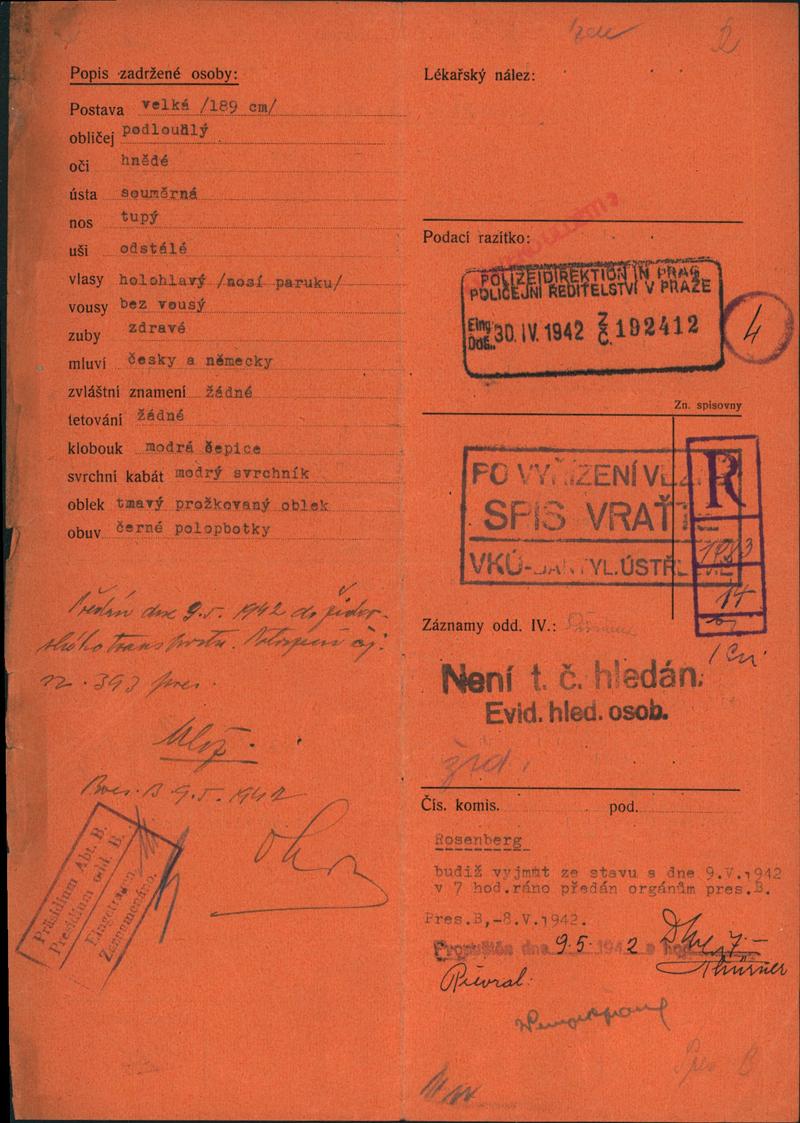 Popis zadržené osoby:
Postava velká /189 cm/
obličej podlouhlý
oči hnědé
ústa souměrná
nos tupý
uši odstálé
vlasy holohlavý /nosí paruku/
vousy bez vousý
zuby zdravé
mluví česky a německy
zvláštní znamení žádné
tetování žádné
klobouk modrá čepice
svrchní kabát modrý svrchník
oblek tmavý prožkovaný oblek
obuv černé polopbotky
dne 9.5. 1942 do židov-
ského transportu.
393 pres.
Pres. B 9.5. 1942
Präsidium Abt. B.
Presidium odd. B.
Eingetragen
Zaznamenáno.
2
Lékařský nález:
Podací razítko:
POLIZEIDIREKTION IN PRAG
POLICEJNÍ ŘEDITELSTVÍ V PRAZE
Eing. Doš. 30. IV. 1942 Z Č. 192412
4
Zn. spisovny
PO VYŘÍZENÍ
SPIS VRAŤTE
VKÚ-DAKTYL.ÚSTŘEDNĚ
R
14
Záznamy odd. IV.:
Není t. č. hledán.
Evid. hled. osob.
žid.
Čís. komis. pod.
Rosenberg
budiž vyjmut ze stavu a dne 9.V.1942
v 7 hod.ráno předán orgánům pres.B.
Pres.B,-8.V.1942.
Propuštěn dne 9.5. 1942 v hod. 7-
Pres B